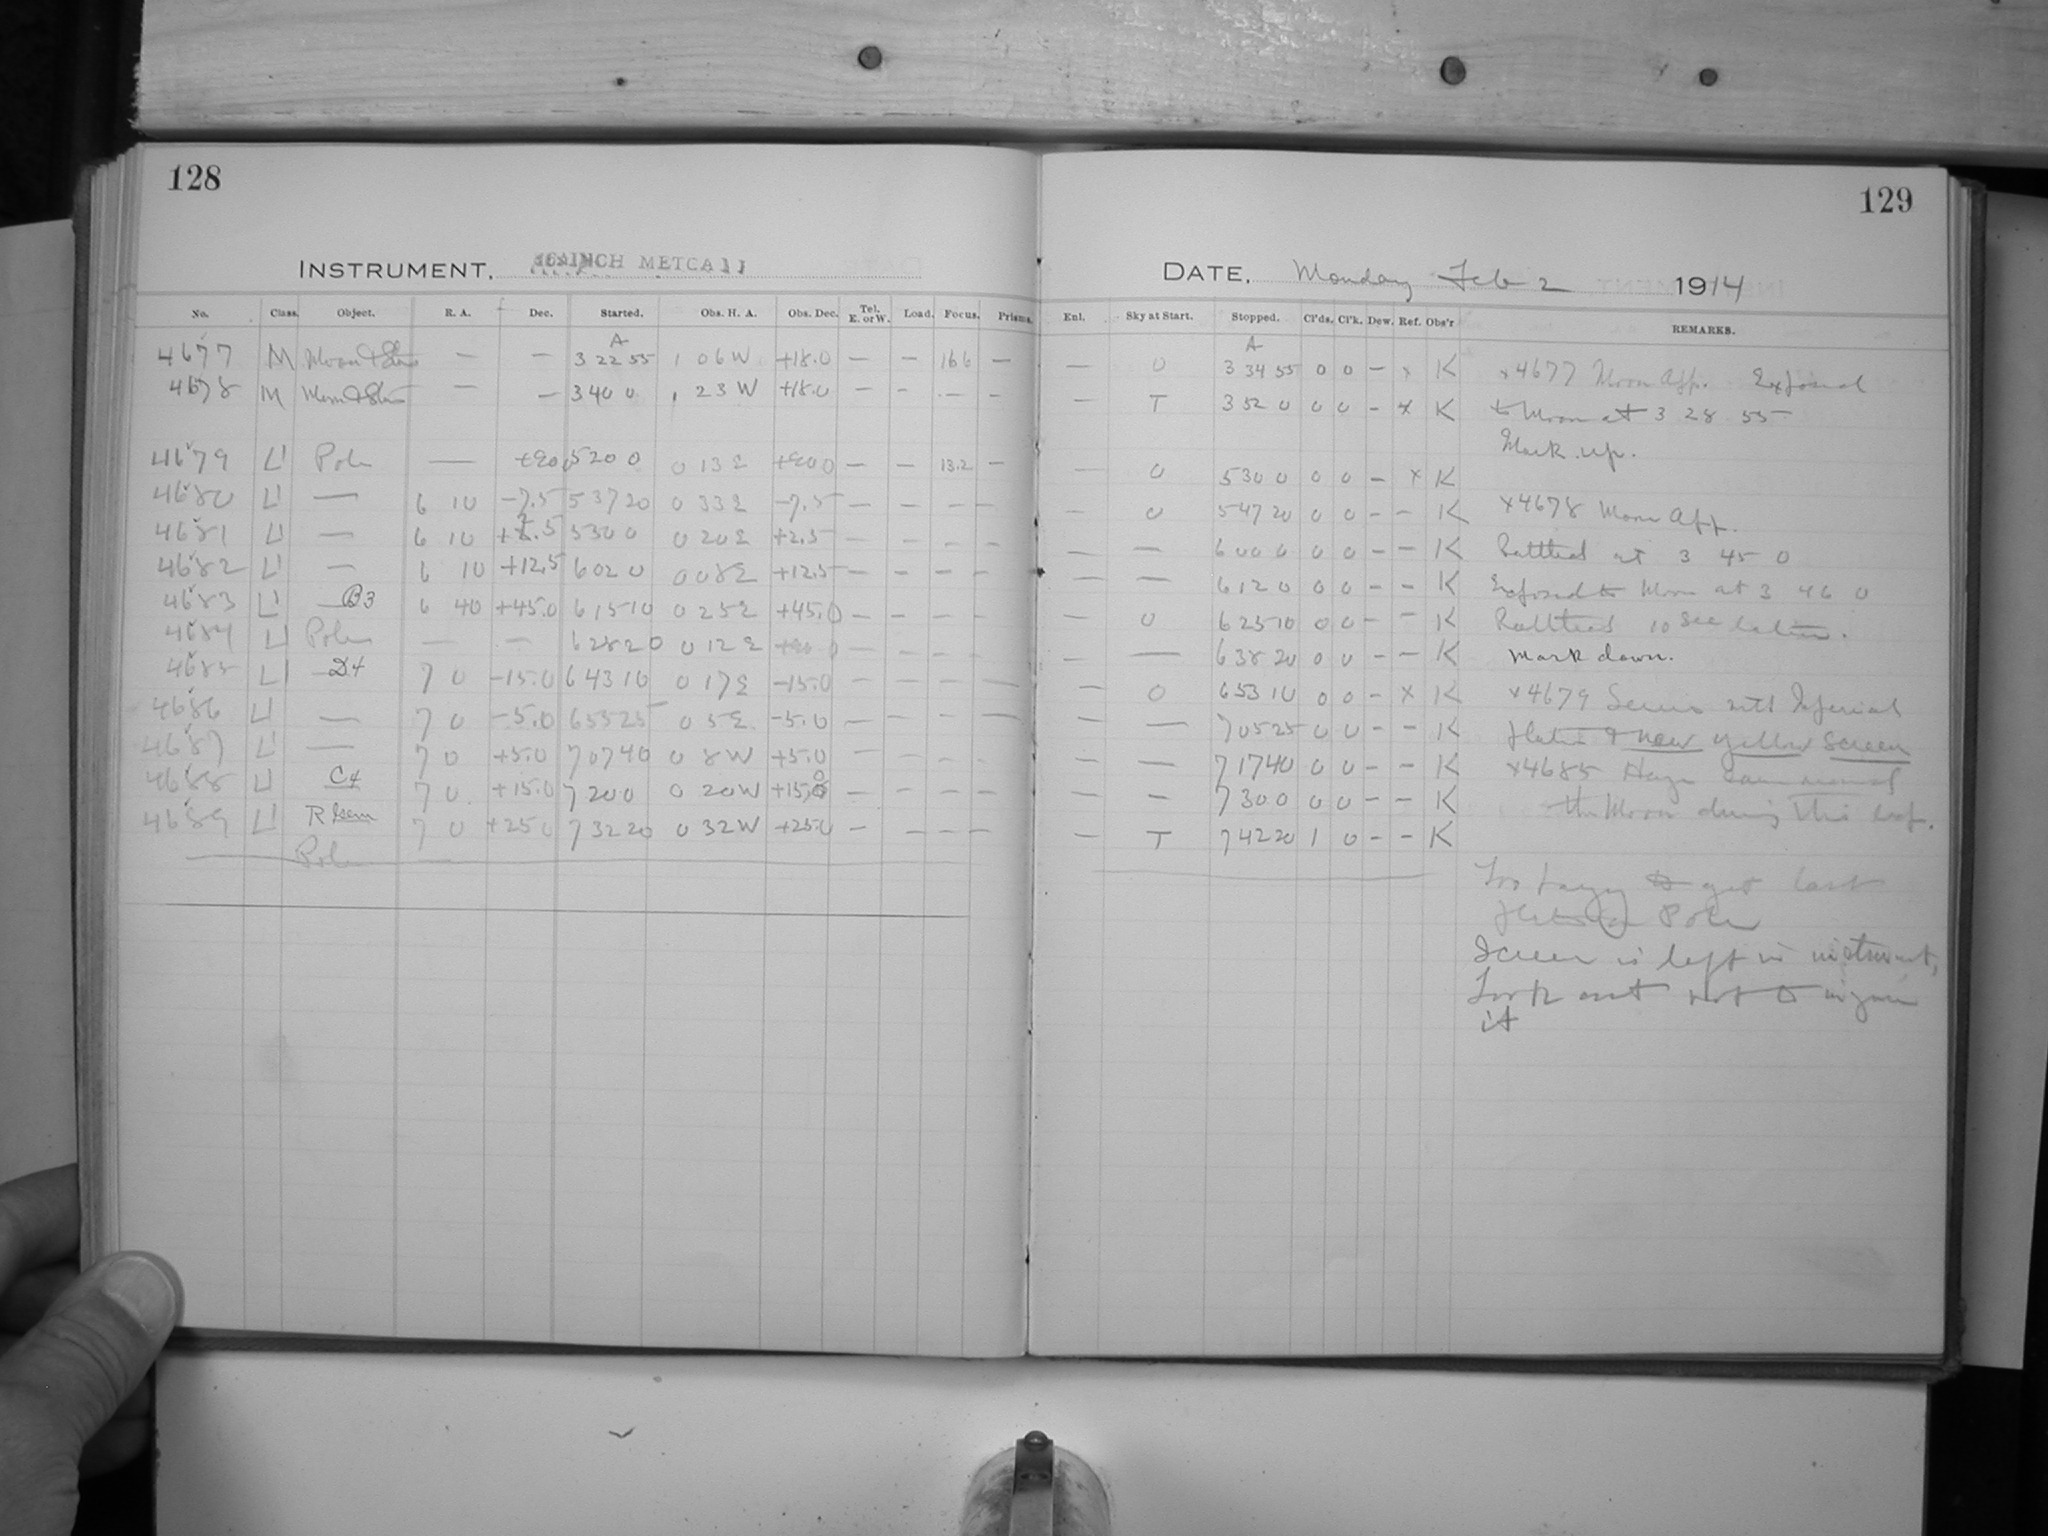 128
INSTRUMENT, 16-INCH METCALF
No. Class. Object. R. A. Dec. Started. Obs. H. A. Obs. Dec. Tel. E. or W. Load. Focus. Prisms.
A
4677 M Moon & Stars — — 3 22 55 1 06 W +18.0 — — 16.6 —
4678 M Moon & Stars — — 3 40 0 1 23 W +18.0 — — — —
4679 Pole — +90.0 5 20 0 0 13 E +90.0 — — 13.2 —
4680 — 6 10 -7.5 5 37 20 0 33 E -7.5 — — — —
4681 — 6 10 +2.5 5 50 0 0 20 E +2.5 — — — —
4682 — 6 10 +12.5 6 02 0 0 08 E +12.5 — — — —
4683 B3 6 40 +45.0 6 15 10 0 25 E +45.0 — — — —
4684 Pole — — 6 28 20 0 12 E +90 0 — — — —
4685 D4 7 0 -15.0 6 43 10 0 17 E -15.0 — — — —
4686 — 7 0 -5.0 6 55 25 0 5 E -5.0 — — — —
4687 — 7 0 +5.0 7 07 40 0 8 W +5.0 — — — —
4688 C4 7 0 +15.0 7 20 0 0 20 W +15.0 — — — —
4689 R Gem 7 0 +25 0 7 32 20 0 32 W +25.0 — — — —
Pole
129
DATE, Monday Feb 2 1914
Enl. Sky at Start. Stopped. Cl'ds. Cl'k. Dew. Ref. Obs'r REMARKS.
A
— 0 3 34 55 0 0 — x K
— T 3 52 0 0 0 — x K
— 0 5 30 0 0 0 — x K
— 0 5 47 20 0 0 — — K
— — 6 00 0 0 0 — — K
— — 6 12 0 0 0 — — K
— 0 6 25 10 0 0 — — K
— — 6 38 20 0 0 — — K
— 0 6 53 10 0 0 — x K
— — 7 05 25 0 0 — — K
— — 7 17 40 0 0 — — K
— — 7 30 0 0 0 — — K
— T 7 42 20 1 0 — — K
x4677 Moon App. Exposed
to Moon at 3 28 55
Mark up.
x4678 Moon App.
Rattled at 3 45 0
Exposed to Moon at 3 46 0
Rattled 10 sec later.
Mark down.
x4679 Series with Imperial
plates & new yellow screen
x4685 Haze
the Moon during this exp.
Too hazy to get last
plate on Pole
Screen is left in instrument,
Look out not to injure
it